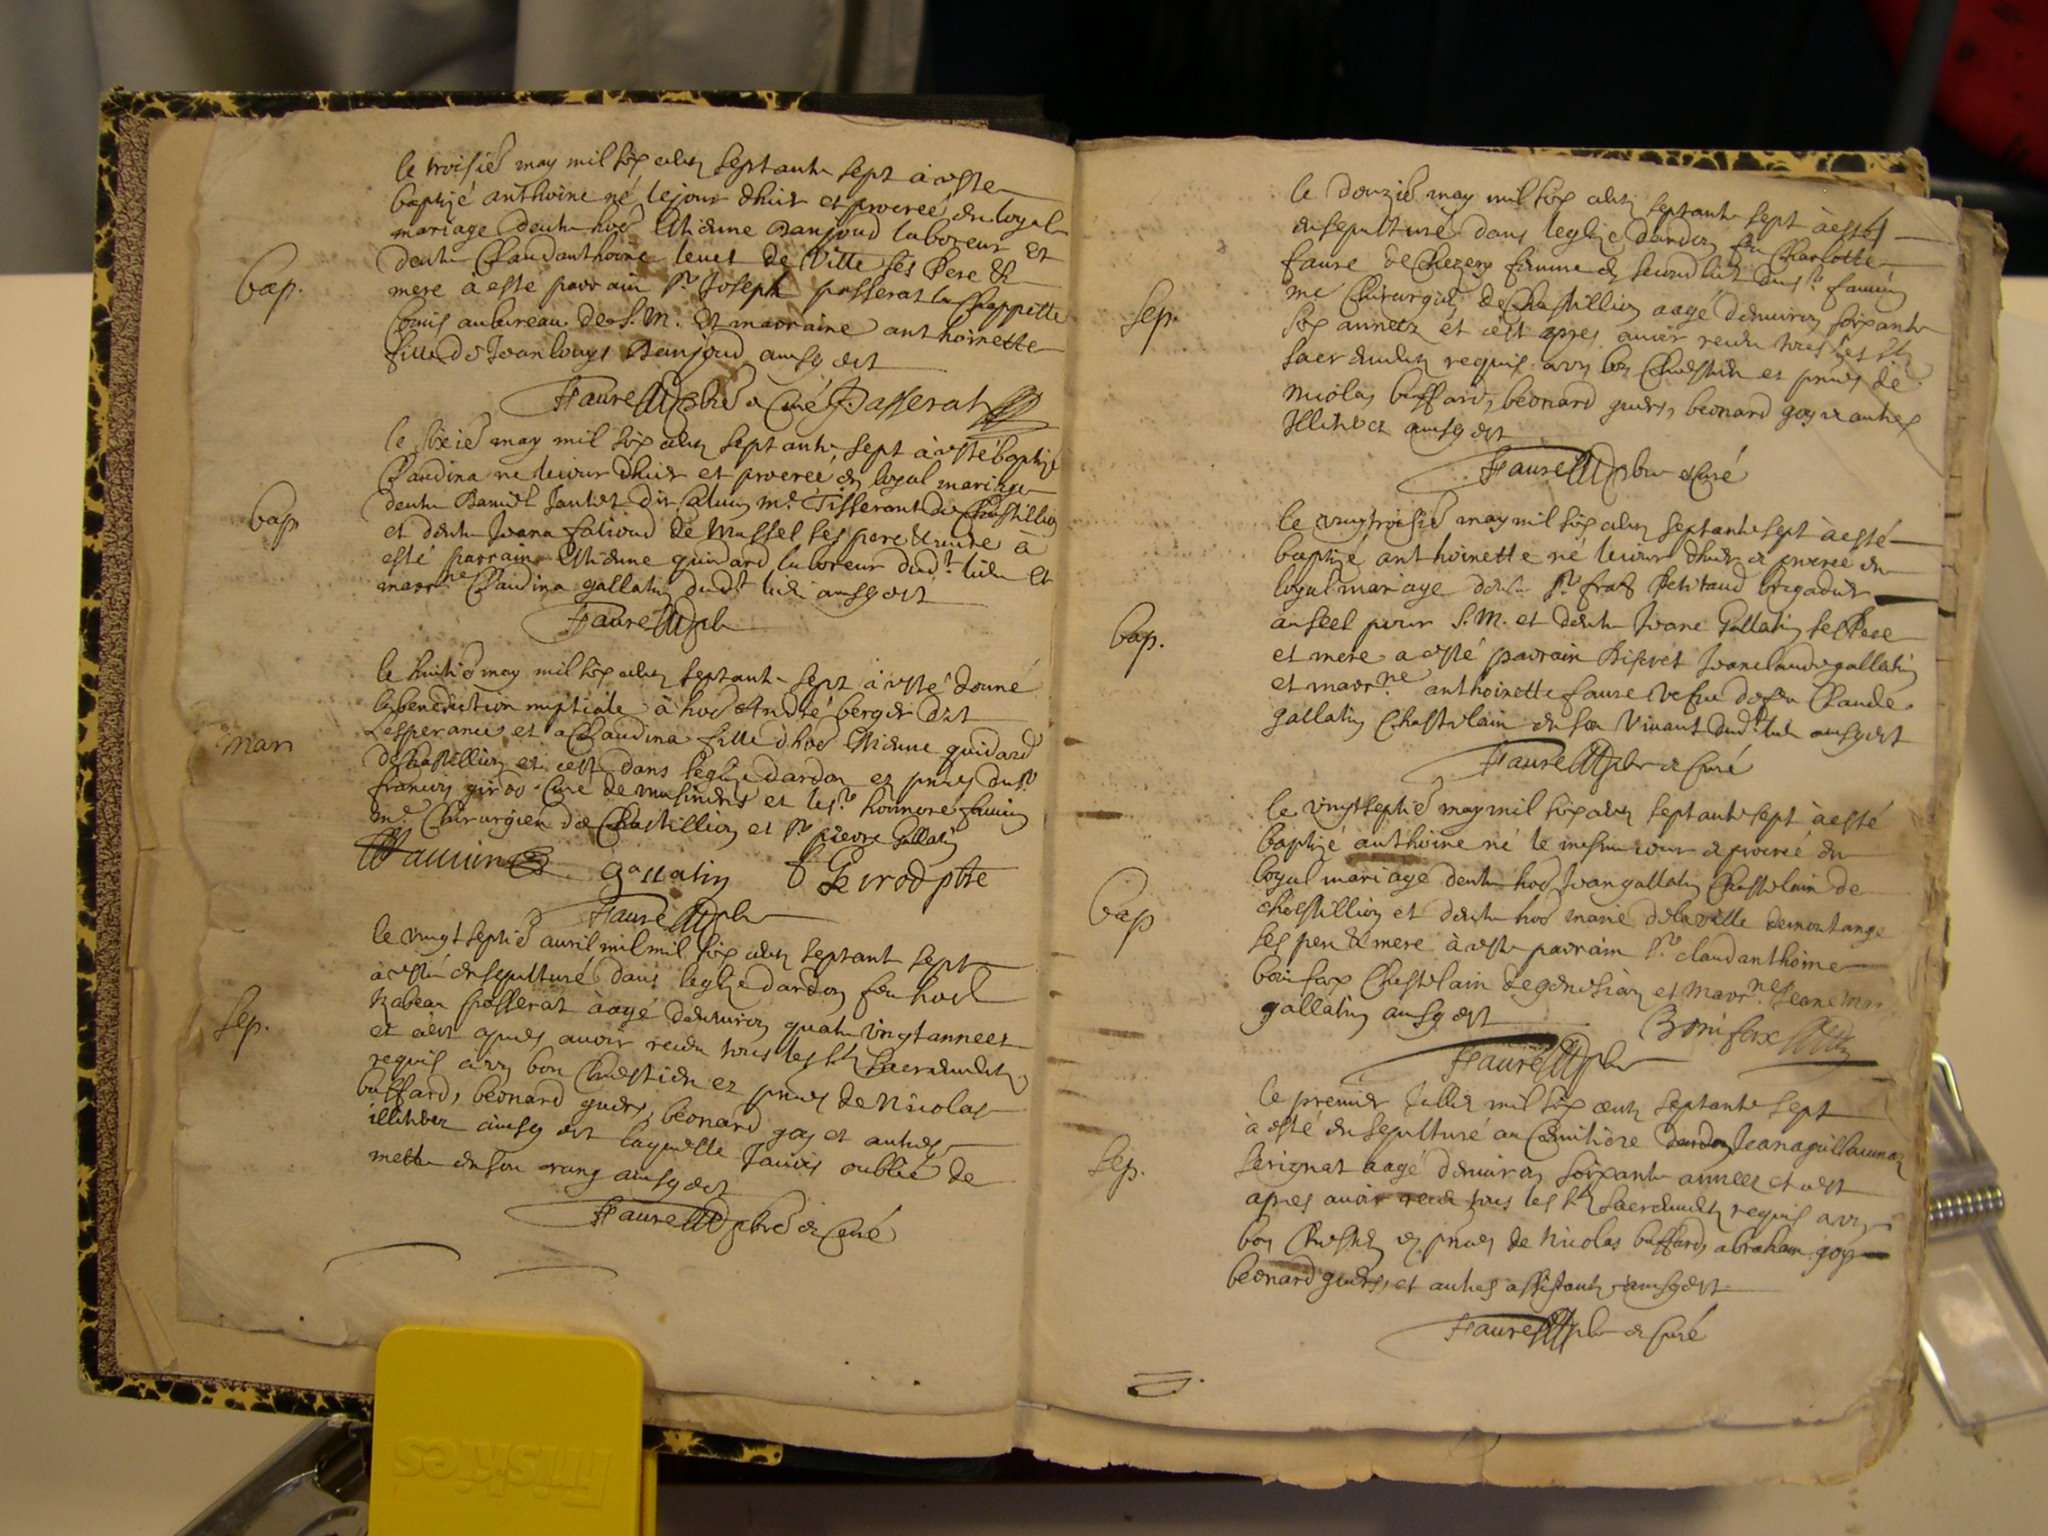 le troisie may mil six cens septante sept à este
baptizé anthoine né le jour dhier et procreé en loyal
mariage dentre hoe Estienne Banjoud laboreur et
dentre Claudanthoine levet de Ville ses Pere &
mere à este parrain Sr Joseph passerat la Chappette
bap.
Comis au bureau de S. M. et marraine anthoinette
fille de Jean louys Banjoud ainsy est
Faure pbre & Curé J. Passerat
le sixie may mil six cens septante sept à esté baptizé
Claudina né le jour dhier et procreé en loyal mariage
dentre Daniel Jantet dit Calvin me Tisserant de Chastillion
bap
et dentre Jeana falioud de Mussel ses pere & mere à
esté parrain Estienne guidard laboreur dudt lieu et
marrne Claudina gallatin dudt lieu ainsy est
Faure pbr
le huitie may mil six cens septante sept à esté donné
la benediction nuptiale à hoe André bergier dit
Lesperance et a Claudina fille dhoe Estienne guidard
mari
de Chastillion et cest dans leglize dardon ez pnces du Sr
francois girod Curé de musinens et les sr honnore fauvin
me Chirurgien de Chastillion et Sr pierre Gallatin
Fauvin gallatin Girod pbtre
Faure pbr
le vingt septie avril mil mil six cens septante sept
à esté ensepulturé dans leglize dardon feu hoe
passerat à agé denviron quatre vingt annees
sep.
et cest apres avoir receu tous les sts Sacrements
requis a un bon Chrestien ez pnces de Nicolas
buffard, beonard guers, beonard goy et autres
illitterez ainsy est laquelle Javois oublié de
mettre en son rang ainsy est
Faure pbre & Curé
le douzie may mil six cens septante sept à esté
ensepulturé dans leglize dardon feu Charlotte
faure de Chezery femme en second lict du Sr fauvin
me Chirurgien de Chastillion aagé denviron soixante
sep.
six annees et cest apres avoir receu tous les sts
sacrements requis a un bon Chrestien et pnces de
Nicolas buffard, beonard guers, beonard goy & autres
Illitterez ainsy est
Faure pbre & Curé
le vingtroisie may mil six cens septante sept à esté
baptizé anthoinette né le jour dhier & procreé en
loyal mariage dentre Sr fras Petitaud brigadier
au seel pour S. M. et dentre Jeane Gallatin ses Pere
bap.
et mere a esté parrain discret Jean claude gallatin
et marrne anthoinette faure vefve de feu Claude
gallatin Chastelain en son Vivant dudt lieu ainsy est
Faure pbr & Curé
le vingtseptie may mil six cens septante sept à esté
baptizé anthoine né le mesme jour & procreé en
loyal mariage dentre hoe Jean gallatin Chastelain de
bap
Chastillion et dentre hoe marie de la ville de montange
ses pere & mere à este parrain Sr. claudanthoine
boniface Chastelain de et Marrne Jeane
gallatin ainsy est
Boniface
Faure pbr
le premier Jullie mil six cens septante sept
à esté ensepulturé au Cemitiere dardon Jeana guillaumaz
serignat aagé denviron soixante annees et cest
sep.
apres avoir receu tous les sts sacrements requis a un
bon Chrestien ez pnces de Nicolas buffard, abraham goy
beonard guers, et autres assistants ainsy est
Faure pbr & Curé
Friskies